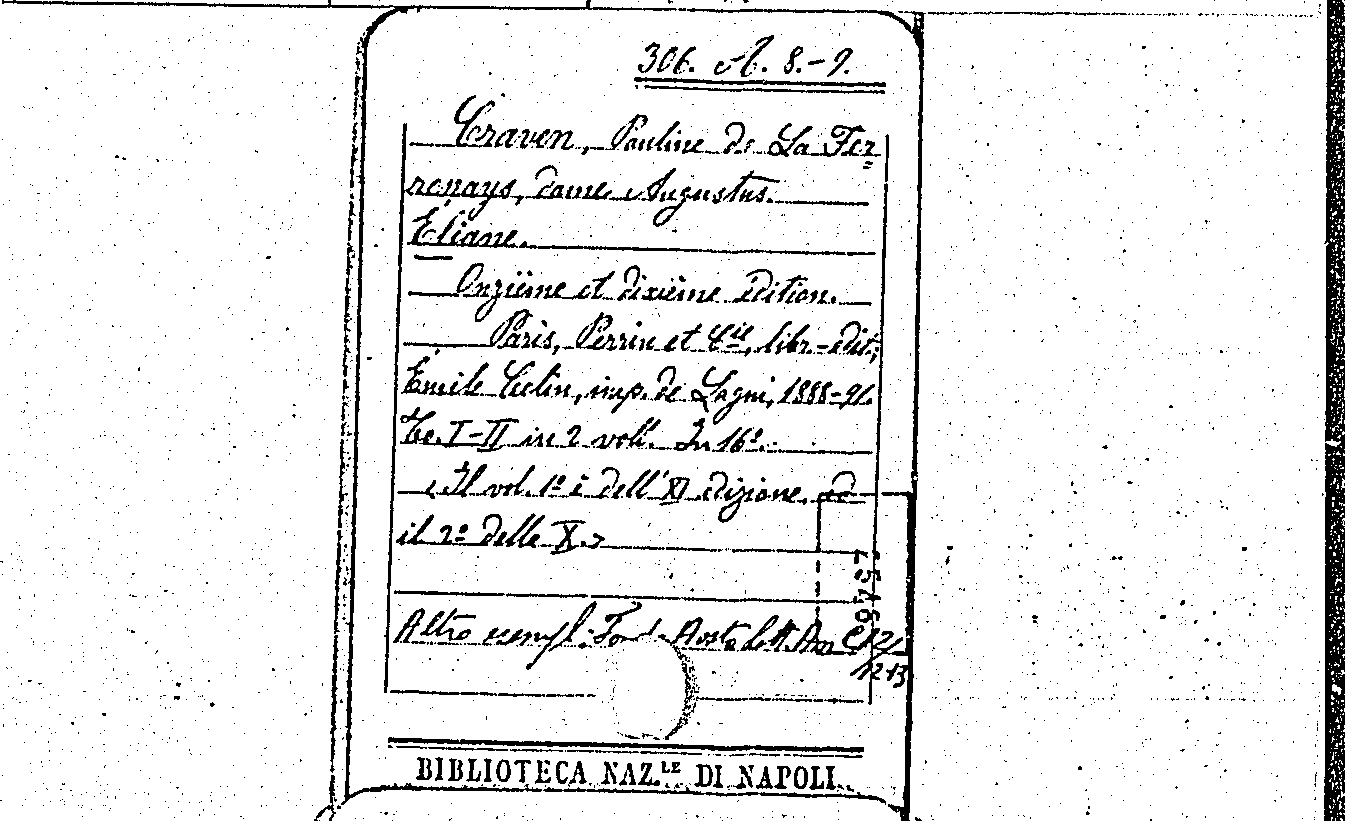 306. A. 8.-9.
Craven, Pauline de La Fer=
ronays, dame Augustus.
Éliane.
Onzième et dixième édition.
Paris, Perrin et Cie, libr.-édit;
Émile Colin, imp. de Lagni, 1888-91.
To. I-II in 2 voll. In 16º.
Il vol. 1º è dell'XI edizione, ed
il 2º delle X.>
75496
Altro esempl: Fond. Aosta
12+13
BIBLIOTECA NAZ.LE DI NAPOLI